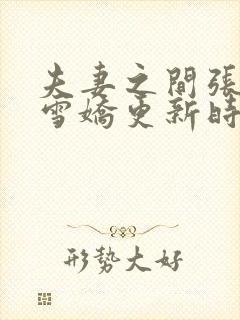 夫妻之間張
雪嬌更新時
形勢大好